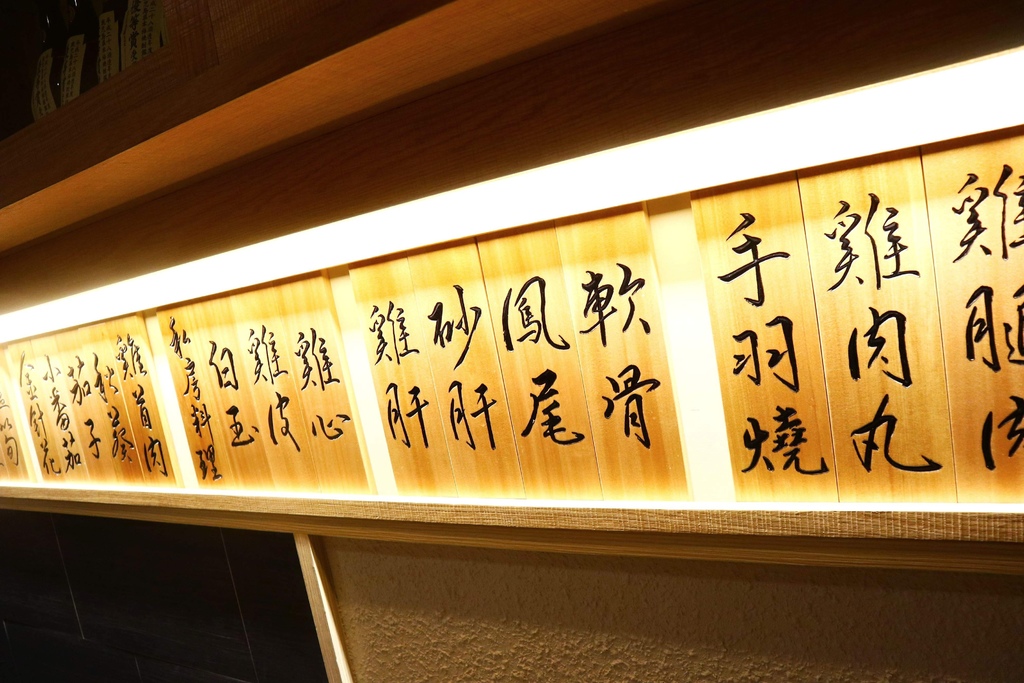 雞腿肉
雞肉丸
手羽燒
軟骨
鳳尾
砂肝
雞肝
雞心
雞皮
白玉
私房料理
雞首肉
秋葵
茄子
小番茄
金針花